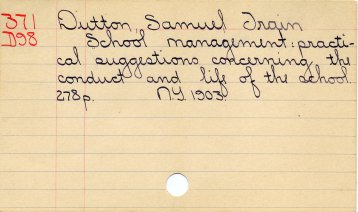 371 Dutton, Samuel Train
D98 School management: practi-
cal suggestions concerning the
conduct and life of the school.
278p. N.Y. 1903.